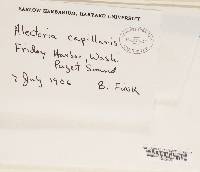 FARLOW HERBARIUM, HARVARD UNIVERSITY
Alectoria capillaris
Friday Harbor, Wash.
Puget Sound
2 July 1906 B. Fink